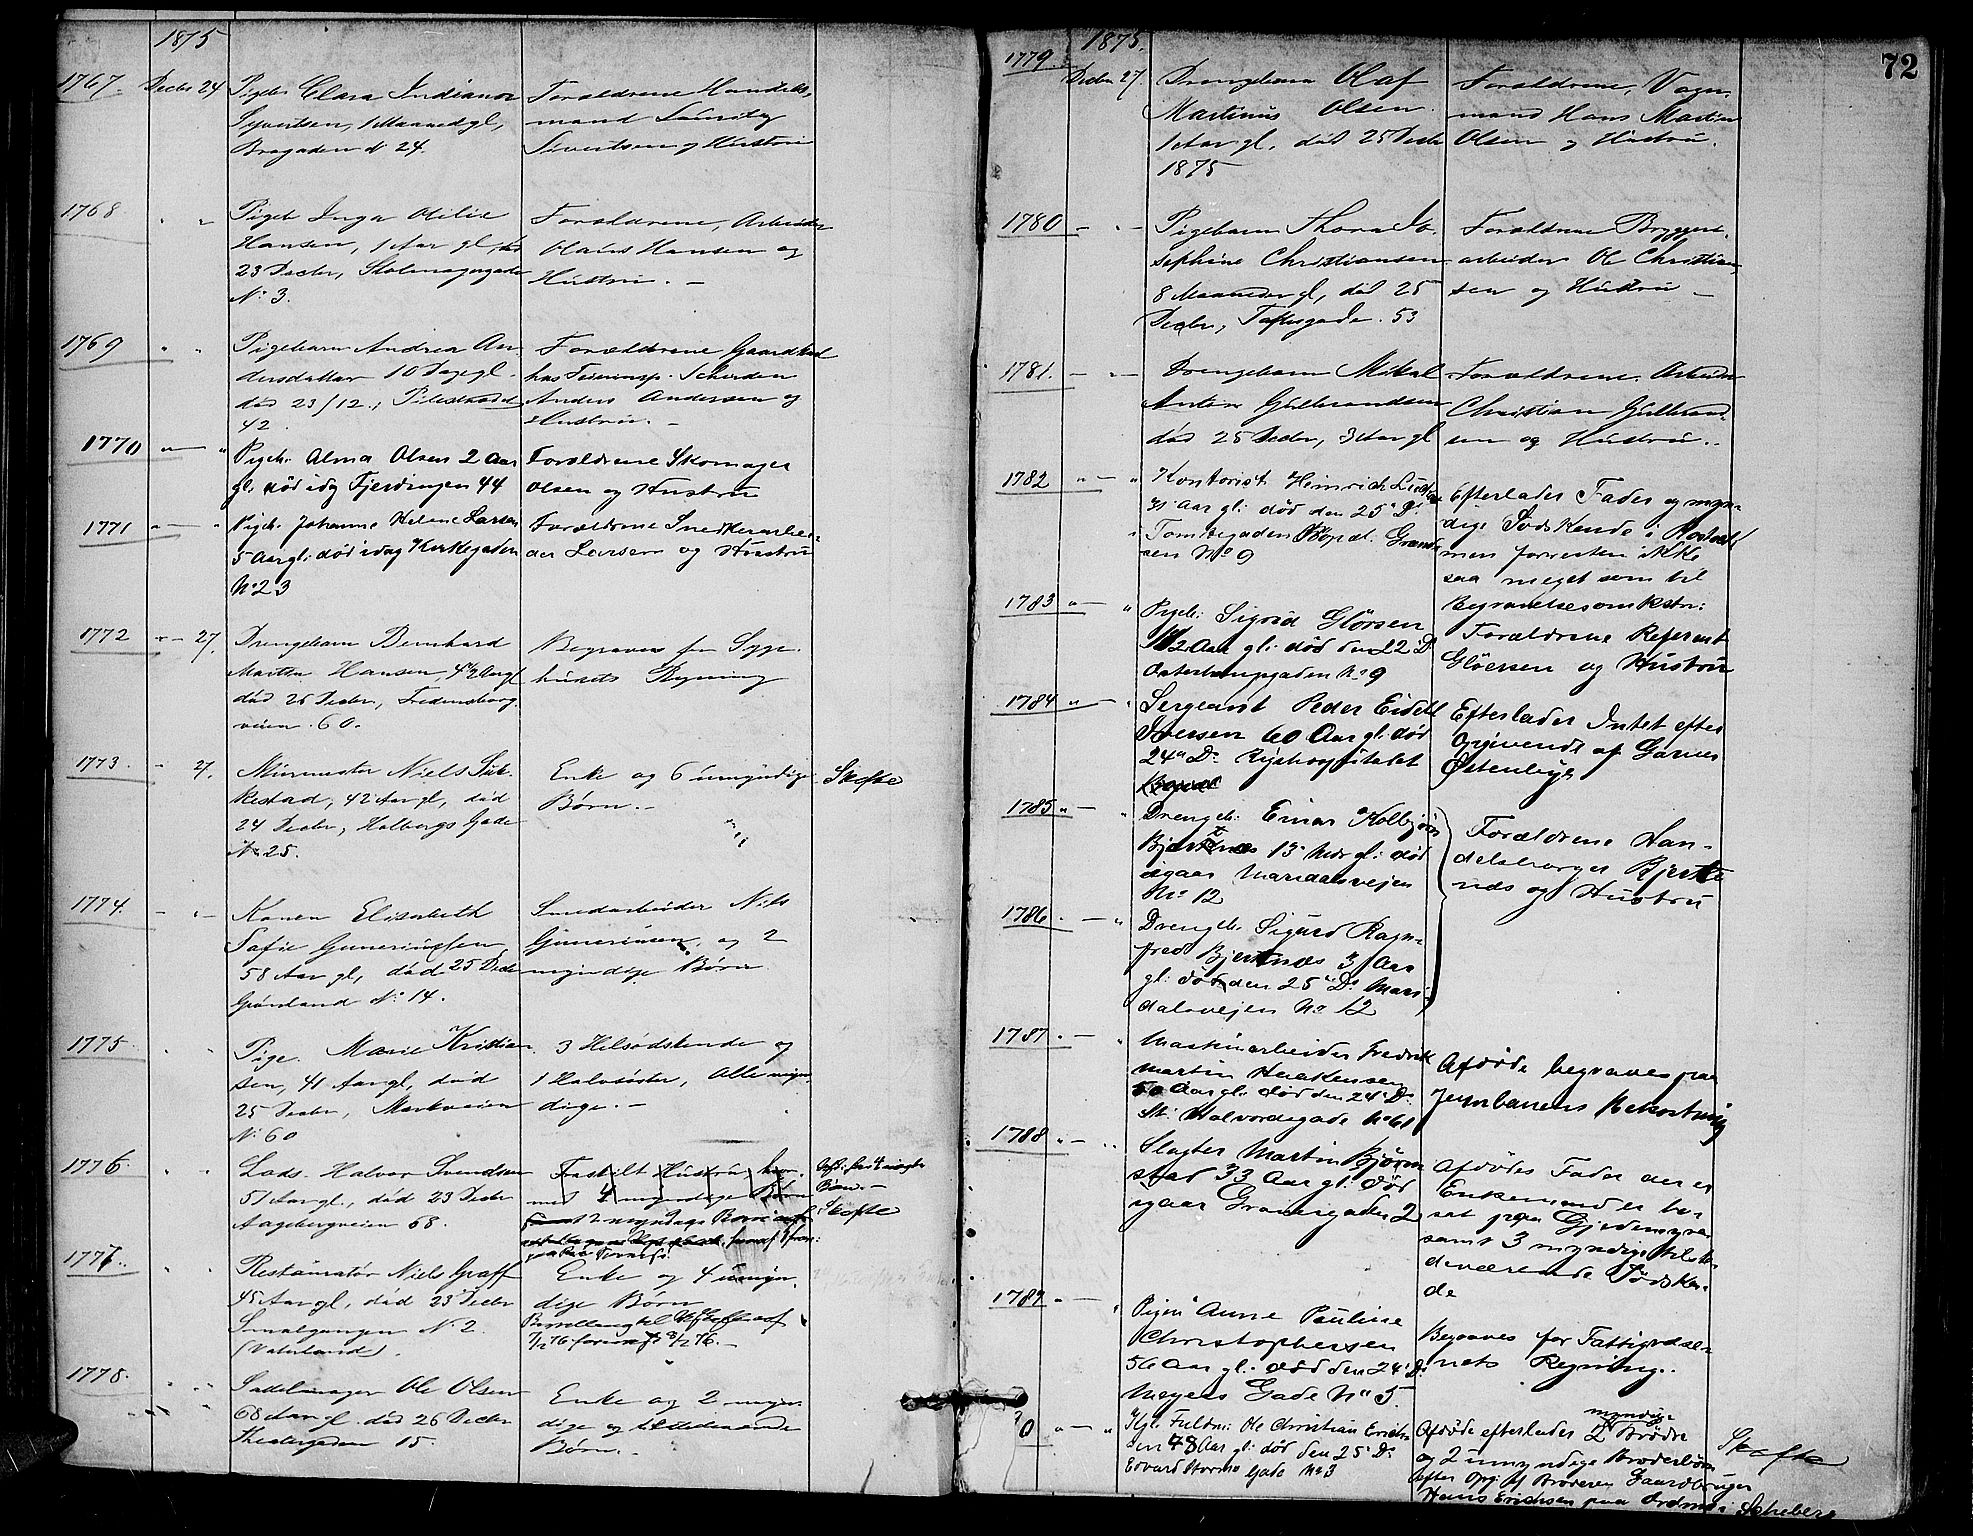 1875
1767. Decbr 24 Pigeb. Clara Indianor
Syvertsen, 1 Maaned gl,
Brogaden N 24.
Forældrene Handels-
mand Lauritz
Sivertsen og Hustru
1768 " " Pigeb Inga Otilie
Hansen, 1 Aar gl, død
23 Decbr, Stolmagergaden
No 3.
Forældrene, Arbeider
Olaus Hansen og
Hustru. —
1769 " " Pigebarn Andrea An-
dersdatter 10 Dage gl.
død 23/12, Pilestrædet
42.
Forældrene Gaardskarl
hos
Anders Andersen og
Hustru. —
1770 " — " Pigeb. Alma Olsen 2 Aar
gl. død idag Fjerdingen 44
Forældrene Skomager
Olsen og Hustru
1771 " — " Pigeb. Johanne Helene Larsen
5 Aar gl: død idag Kirkegaden
No 23
Forældrene Snedkerarbei-
der Larsen og Hustru
1772 " — 27. Drengebarn Bernhard
Martin Hansen, 4 1/2 Aar gl
død 26 Decbr, Fredensborg-
veien 60.
Begraves for Syge-
husets Regning
1773. - 27. Murmester Niels
42 Aar gl, død
24 Decbr, Holbergs Gade
No 25.
Enke og 6 umyndige
Børn. —
Skifte
1774. - " - Konen Elisabeth
Sofie Gunerius
58 Aar gl, død 25 Decbr
Grønland No 14.
Smedarbeider Nils
Gunerius, og 2
myndige Børn
1775 " " Pige Marie Kristian-
sen, 41 Aar gl, død
25 Decbr, Markveien
No 60
3 Helsødskende og
1 Halvsøster, Alle myn-
dige. —
1776. " " Lods. Halvor Svendsen
57 Aar gl, død 23 Decbr
Aagebergveien 68.
Fraskilt Hustru
med 4 myndige Børn
2 myndige Børn
Børn. —
Skifte
1777. " " Restauratør Niels Graff
45 Aar gl, død 23 Decbr
Smalgangen N 2.
(Vaterland).
Enke og 4 umyn-
dige Børn
1778. " " Sadelmager Ole Olsen
68 Aar gl død 26 Decbr
Theatergaden 15.
Enke og 2 myn-
dige og tilstedeværende
Børn. —
72
1875.
1779. Decbr 27. Drengebarn Olaf
Martinius Olsen
1 Aar gl, død 25 Decbr
1875
Forældrene, Vogn-
mand Hans Martin
Olsen og Hustru.
1780 - " - Pigebarn Thora Jo-
sephine Christiansen
8 Maaneder gl, død 25
Decbr, Toftesgade 53
Forældrene Bryggeri-
arbeider Ole Christian-
sen og Hustru —
1781. - " - Drengebarn Mikal
Anton Gulbrandsen
død 25 Decbr, 3 Aar gl
Forældrene Arbeider
Christian Gulbrand-
sen og Hustru.
1782 " — " Kontorist Heinrich
Aar gl: død den 25' Ds
i Tomtegaden
sen No 9
Efterlader Fader og myn-
dige Sødskende i Rostock
men forresten ikke
saa meget som til
Begravelsesomkstn:
1783 " — " Pigeb: Sigrid Glørsen
1/2 Aar gl: død den 22 Ds
Østerhausgaden No 9
Forældrene Referent
Gløersen og Hustru
1784 " — " Sergeant Peder Eidell
Iversen 60 Aar gl: død
24' Ds Rigshospitalet
Efterlader Intet efter
Opgivende af Garver
Østenlige
1785 " — " Drengeb: Einar Kolbjørn
Bjertnæs 13 Mdr gl: død
igaar Maridalsvejen
No 12
Forældrene Han-
delsborger Bjertn-
næs og Hustru
1786. — " Drengeb. Sigurd Ragn-
fred Bjertnæs 3 Aar
gl: død den 25' Ds Mari-
dalsvejen No 12
1787 . — " Maskinarbeider Fredrik
Martin Haakensen
50 Aar gl: død den 24' Ds
St: Halvordsgade No 61
Afdøde begraves paa
Jernbanens Bekostning
1788 " — " Slagter Martin Bjørn-
stad 33 Aar gl: død
igaar Grændsegaden 2
Afdødes Fader der er
Enkemand er bo-
sat paa Gjedemyren
samt 3 myndige tilste-
deværende Sødsken-
de
1789 " — " Pigen Anne Pauline
Christophersen
56 Aar gl: død den 24' Ds
Meyers Gade No 5.
Begraves for Fattigvæse-
nets Regning.
0 " — " Kgl. Fuldm: Ole Christian Erich-
sen 48 Aar gl: død den 25' Ds
Edvard Storms Gade No 3
Afdøde efterlader 2 myndige Brødre
og 2 umyndige Broderbørn
efter Opg: af Broderen Gaardbruger
Hans Erichsen paa
Skifte